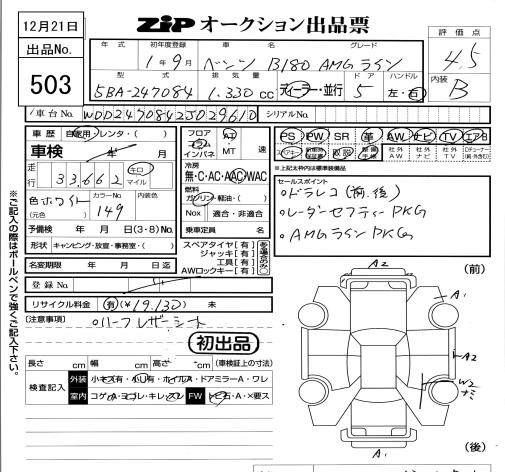 12月21日
出品No.
503
ZIP オークション出品票
評価点
4.5
内装
B
年式 初年度登録 車名 グレード
1年9月 ベンツ B180 AMGライン
型式 排気量 ドア ハンドル
5BA-247084 1.330cc ディーラー・並行 5 左・右
車台No. WDD2470842J029610 シリアルNo.
車歴 自家用・レンタ・( )
車検 年 月
走行 33,662 キロ マイル
色 ホワイト カラーNo. 149 内装色
(元色)
予備検 年 月 日(3・8)No.
形状 キャンピング・放宣・事務室・( )
名変期限 年 月 日迄
登録No.
リサイクル料金 有(¥19.130) 未
フロア コラム インパネ AT MT 速
冷房
無・C・AC・AAC・WAC
燃料
ガソリン・軽油・( )
Nox 適合・非適合
乗車定員 名
スペアタイヤ[有]
ジャッキ[有]
工具[有]
AWロックキー[有]
ある場合のみ○
PS PW SR 革 AW ナビ TV エアB
取説 社外AW 社外ナビ 社外TV
※上記太枠内は標準装備品
セールスポイント
○ドラレコ(前.後)
○レーダーセフティーPKG
○AMGラインPKG
[注意事項]
○ハーフレザーシート
初出品
長さ cm 幅 cm 高さ cm (車検証上の寸法)
検査記入
外装 小キズ有・小凹有・ホイルキズ・ドアミラーA・ワレ
室内 コゲA・ヨゴレ・キレ・スレ FW トビ石・A・×要ス
※ご記入の際はボールペンで強くご記入下さい。
A2 (前)
A1
A2
W2
ナミ
A1
(後)